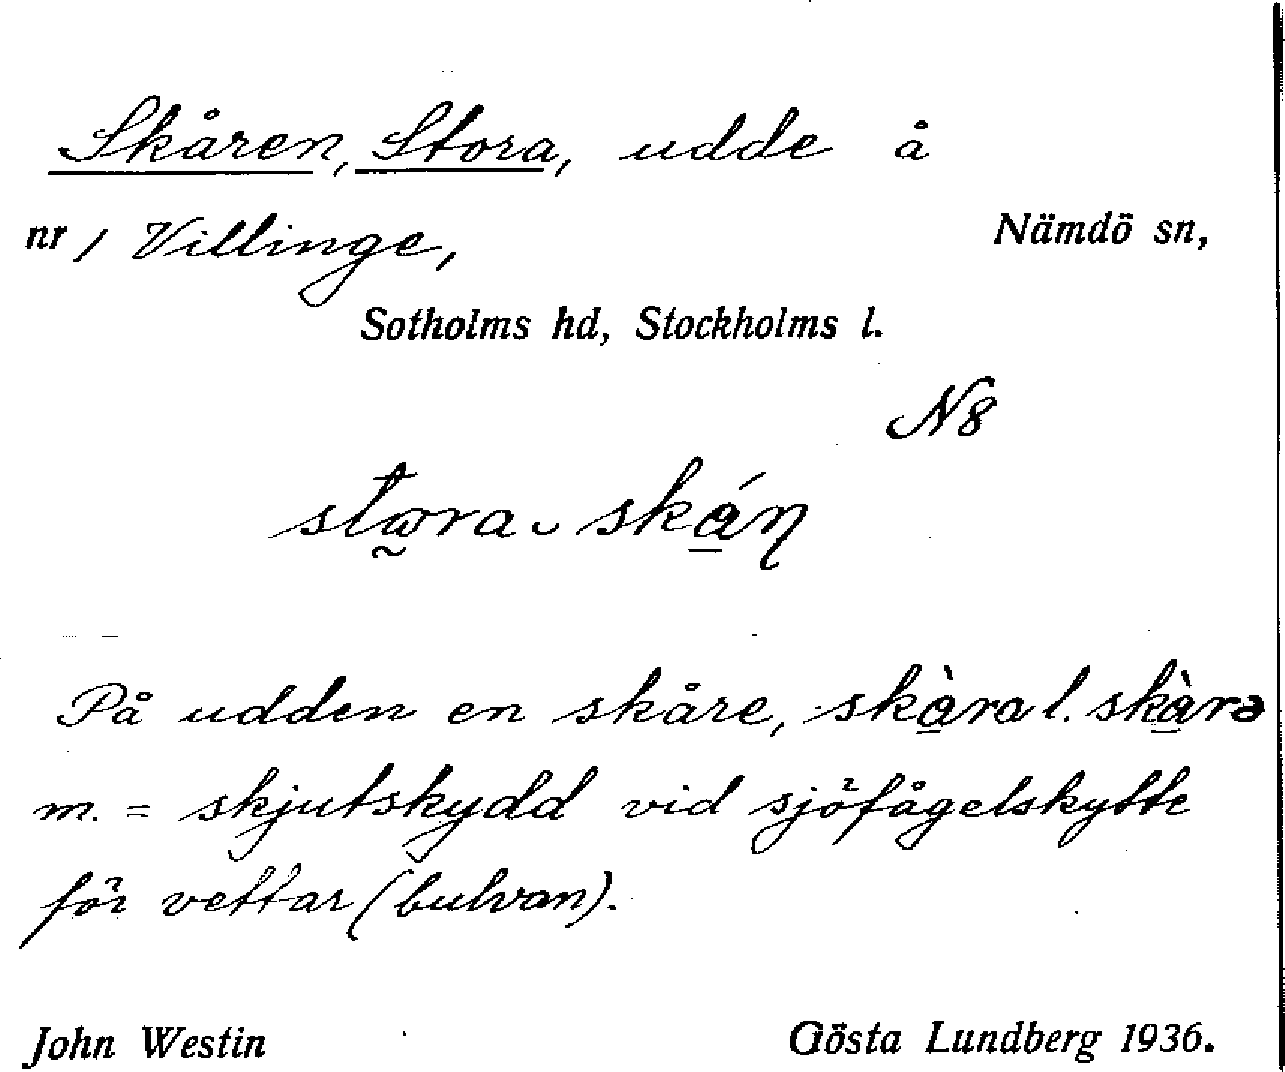 Skåren, Stora, udde å
nr 1 Villinge, Nämdö sn,
Sotholms hd, Stockholms l.
N8
På udden en skåre, skàra l. skàrə
m. = skjutskydd vid sjöfågelskytte
för vettar (bulvan).
John Westin Gösta Lundberg 1936.